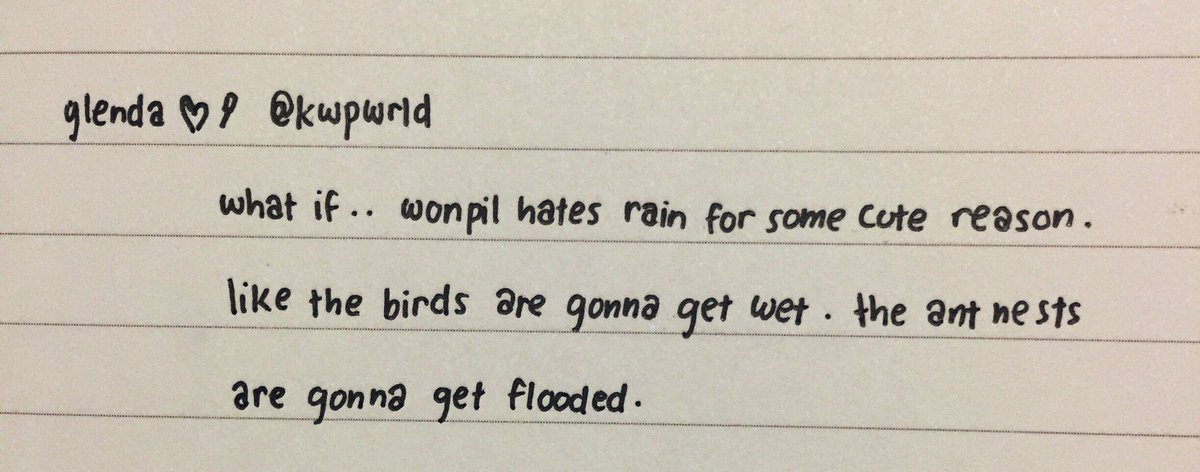 glenda ♡ @kwpwrld
what if.. wonpil hates rain for some cute reason.
like the birds are gonna get wet. the ant nests
are gonna get flooded.